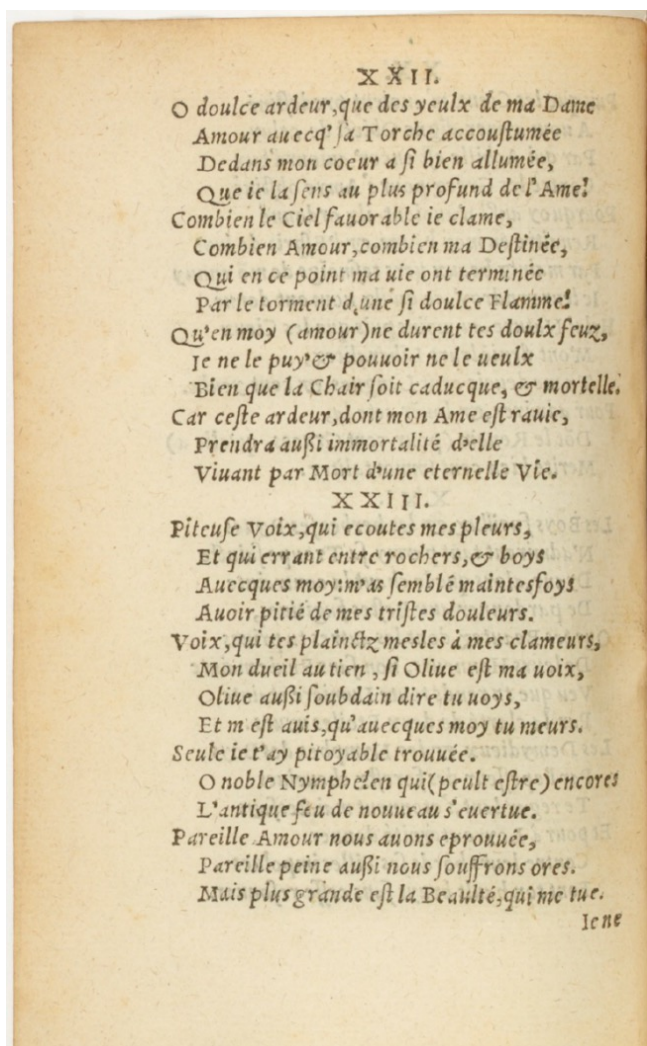 XXII.
O doulce ardeur, que des yeulx de ma Dame
Amour auecq' ſa Torche accouſtumée
Dedans mon coeur a ſi bien allumée,
Que ie la ſens au plus profund de l'Ame!
Combien le Ciel fauorable ie clame,
Combien Amour, combien ma Deſtinée,
Qui en ce point ma uie ont terminée
Par le torment d,une ſi doulce Flamme!
Qu'en moy (amour) ne durent tes doulx feuz,
Je ne le puy' & pouuoir ne le ueulx
Bien que la Chair ſoit caducque, & mortelle.
Car ceſte ardeur, dont mon Ame eſt rauie,
Prendra auſſi immortalité d'elle
Viuant par Mort d'une eternelle Vie.
XXIII.
Piteuſe Voix, qui ecoutes mes pleurs,
Et qui errant entre rochers, & boys
Auecques moy: m'as ſemblé mainteſfoys
Auoir pitié de mes triſtes douleurs.
Voix, qui tes plainctz meſles à mes clameurs,
Mon dueil au tien, ſi Oliue eſt ma uoix,
Oliue auſſi ſoubdain dire tu uoys,
Et m eſt auis, qu'auecques moy tu meurs.
Seule ie t'ay pitoyable trouuée.
O noble Nymphe! en qui (peult eſtre) encores
L'antique feu de nouueau s'euertue.
Pareille Amour nous auons eprouuée,
Pareille peine auſſi nous ſouffrons ores.
Mais plus grande eſt la Beaulté, qui me tue.
Ie ne